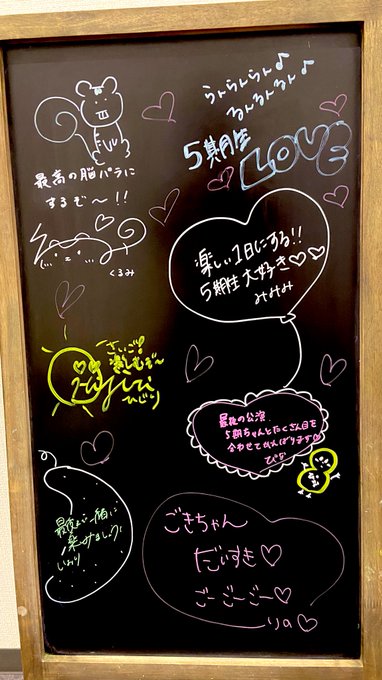 らんらんらん♪
るんるんるん♪
5期生
LOVE
最高の脳パラに
するぞ〜!!
くるみ
楽しい1日にする!!
5期生大好き♡♡
みみみ
さいご!
楽しむぞ〜
ひじり
最後の公演
5期ちゃんとたくさん目を
合わせてがんばります♡
ぴな
最後まで一緒に
楽しみましょう!
いのり
ごきちゃん
だいすき♡
ごーごーごー♡
りの♡